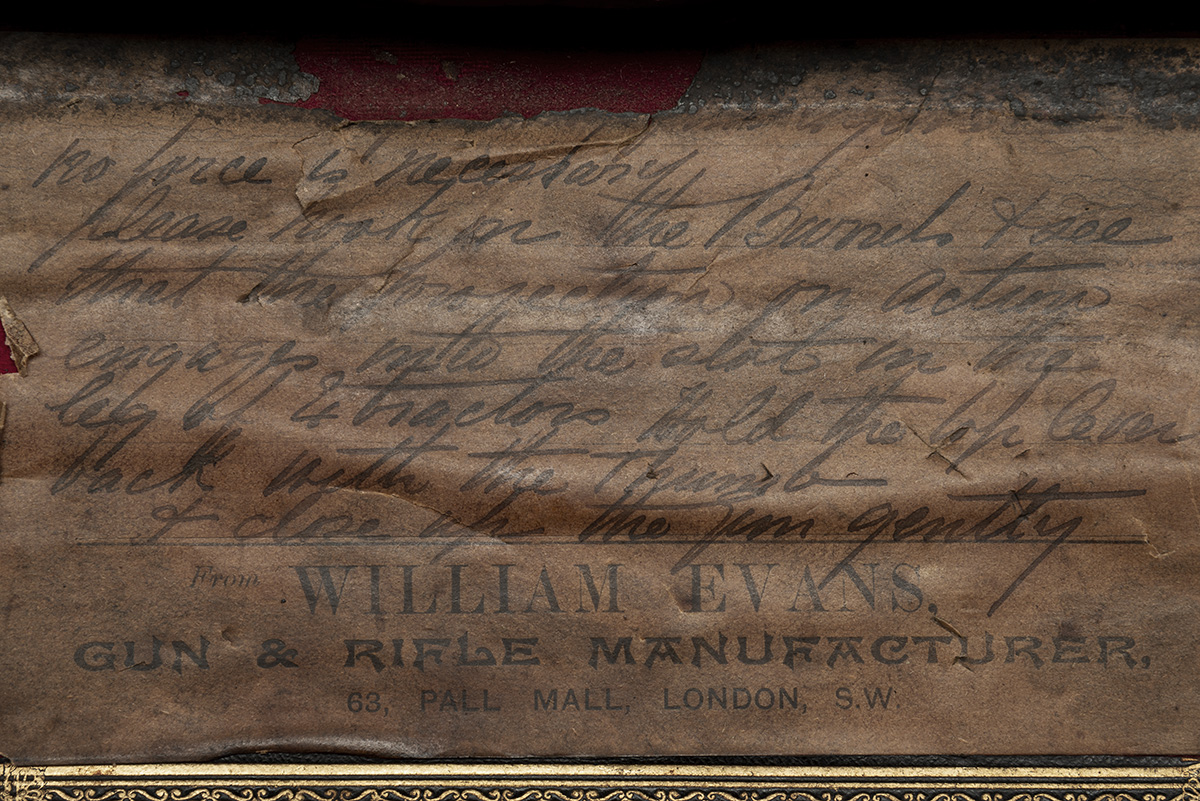 no force is necessary
please hook on the Barrels & see
that the projection on action
engages into the slot in the
leg of Extractors Hold the top lever
back with the Thumb
& close up the gun gently
From WILLIAM EVANS,
GUN & RIFLE MANUFACTURER,
63, PALL MALL, LONDON, S.W.